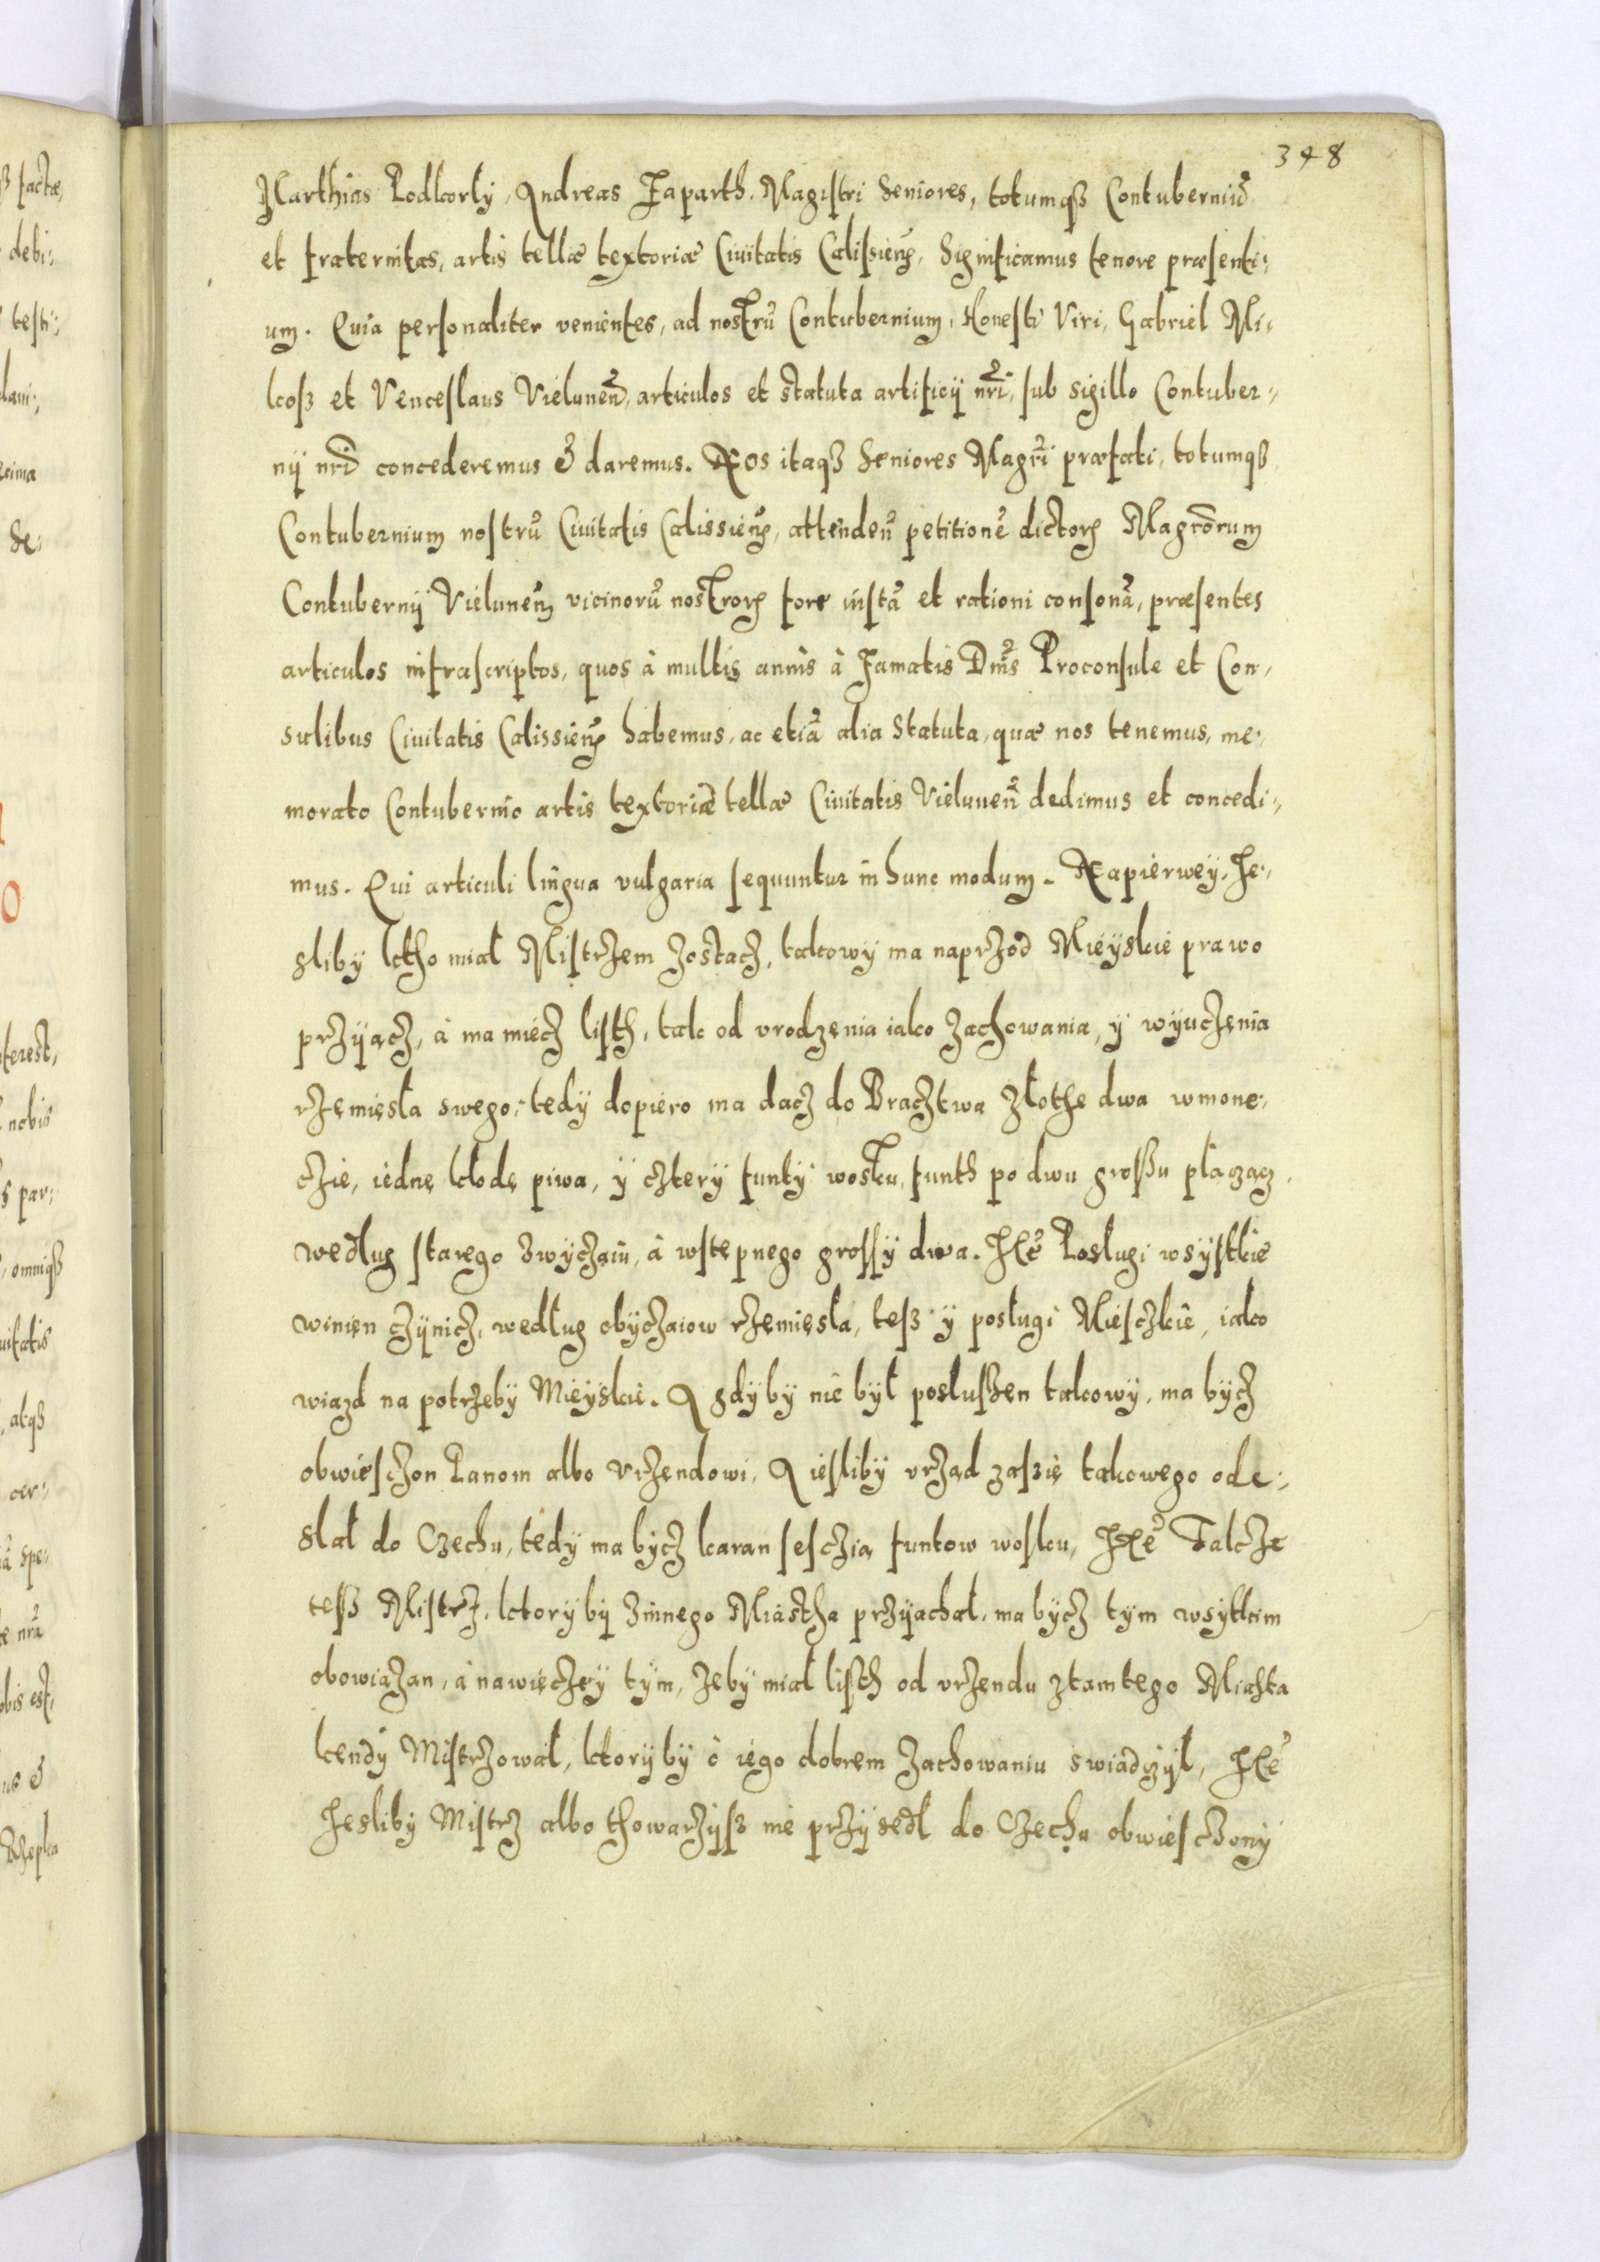 348
Marthias Podkorly, Andreas Japarth, Magistri Seniores, totumqȝ Contuberniũ
et fraternitas, artis tellæ textoriæ Ciuitatis Calissieñ, Significamus tenore præsenti;
um. Quia personaliter venientes, ad nostrũ Contubernium, Honesti Viri, Gabriel Mi;
koß et Venceslaus Vieluneñ, articulos et statuta artificij nri, sub sigillo Contuber;
nij nri concederemus & daremus. Nos itaqȝ Seniores Magri præfati, totumqȝ
Contubernium nostrũ Ciuitatis Calissieñ, attendeñ petitionẽ dictorꝝ Magrorum
Contubernij Vieluneñ vicinorũ nostrorꝝ fore iustã et rationi consonã, præsentes
articulos infrascriptos, quos à multis annis à Famatis Dnis Proconsule et Con;
sulibus Ciuitatis Calissieñ habemus, ac etiã alia Statuta, quæ nos tenemus, me;
morato Contubernio artis textoriæ tellæ Ciuitatis Vieluneñ dedimus et concedi;
mus. Qui articuli lingua vulgaria sequuntur in hunc modum. Napierwey, Je;
sliby ktho miał Mistrzem zostacz, takowy ma naprzod Mieyskie prawo
przyącz, à ma miecz listh, tak od vrodzenia iako zachowania, y wyuczenia
rzemięsla swego, tedy dopiero ma dacz do Bracztwa złothe dwa w mone;
czie, iednę kłodę piwa, y cztery funty wosku, funth po dwu grossu płacząc
według starego zwyczaiu, à wstępnego grossy dwa. Itẽ Posługi wsystkie
winien czynicz, według obyczaiow rzemięsla, teß y posługi Miesczkie, iako
wiazd na potrzeby Mieyskie. A gdyby nie był posłußen takowy, ma bycz
obwiesczon Panom albo Vrzendowi, A iesliby vrząd zasię takowego ode;
słał do Czechu, tedy ma bycz karan sesczią funtow wosku, Itẽ Takze
teß Mistrz, ktory by z innego Miastha przyachał, ma bycz tym wsytkim
obowiązan, à nawięczey tym, zeby miał listh od vrzendu z tamtego Miasta
kendy Mistrzował, ktory by o iego dobrem zachowaniu swiadczył, Itẽ
Jesliby Mistrz albo thowarzyß nie przysedł do Czechu obwiesczony